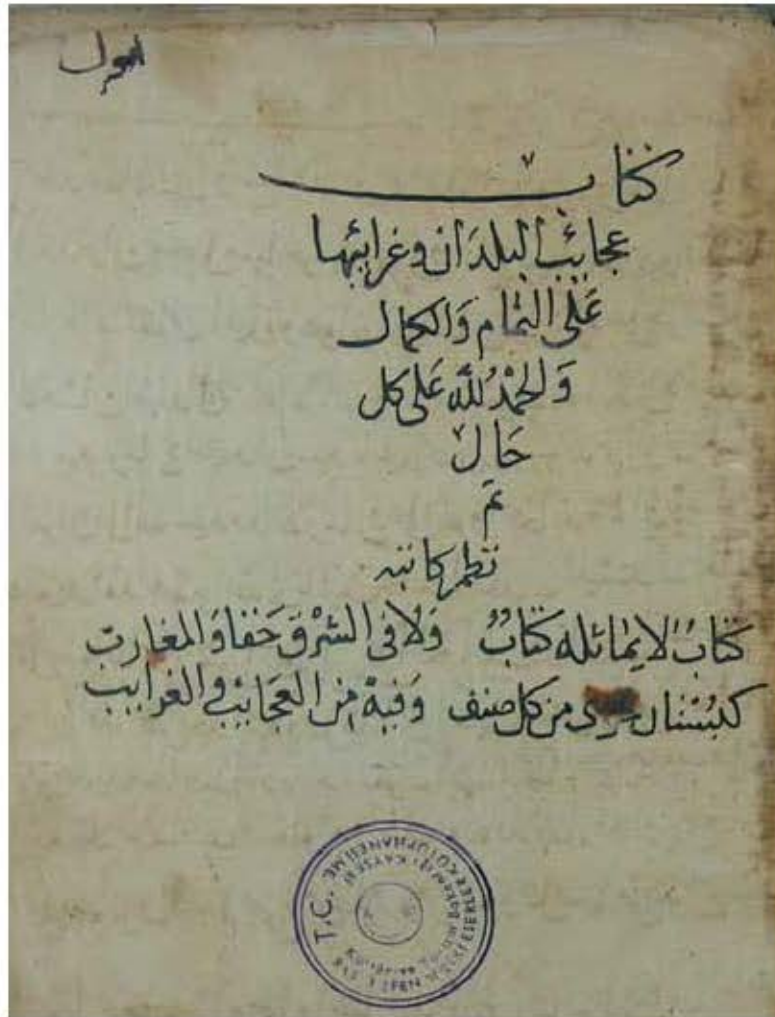 كتاب
عجائب البلدان وغرائبها
على التمام والكمال
والحمد لله على كل
حال
تم
نظم كاتبه
كتاب لا يماثله كتاب ولا فى الشرق حقا والمغارب
كبستان من كل صنف وفيه من العجايب والغرايب
T.C.
KAYSERİ